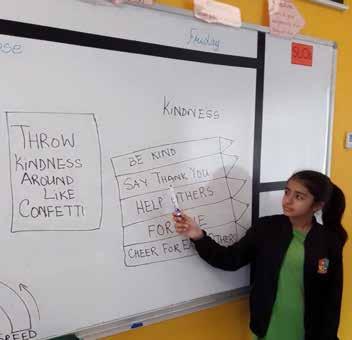 ese
Friday
KINDNESS
THROW
KINDNESS
AROUND
LIKE
CONFETTI
BE KIND
SAY THANK YOU
HELP OTHERS
CHEER FOR
SPEED